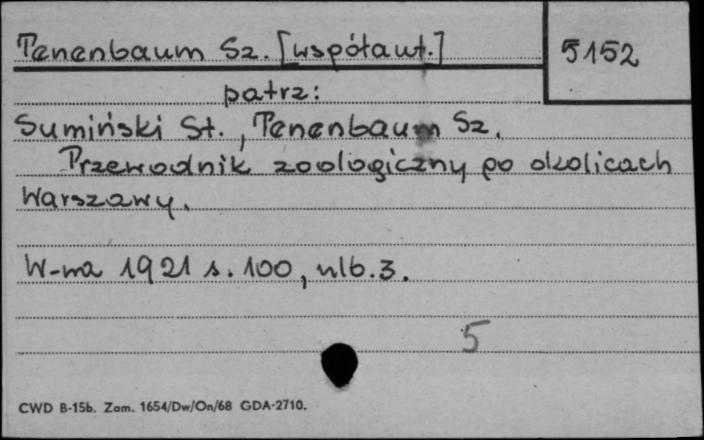 Tenenbaum Sz. [współaut.]
5152
patrz:
Sumiński St., Tenenbaum Sz.
Przewodnik zoologiczny po okolicach
Warszawy.
W-wa 1921 s. 100, nlb. 3.
5
CWD B-15b. Zam. 1654/Dw/On/68 GDA-2710.